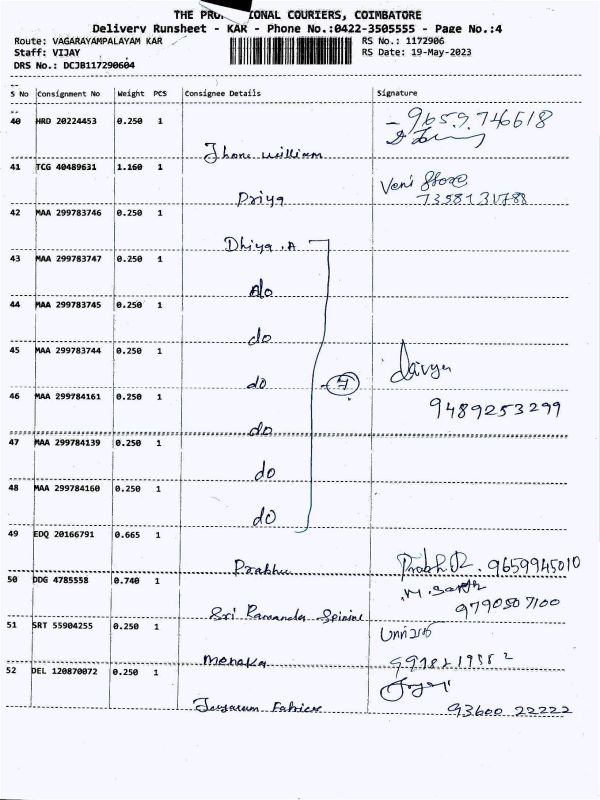 THE PROF IONAL COURIERS, COIMBATORE
Delivery Runsheet - KAR - Phone No.:0422-3505555 - Page No.:4
Route: VAGARAYAMPALAYAM KAR
RS No.: 1172906
Staff: VIJAY
RS Date: 19-May-2023
DRS No.: DCJB117290604
S No Consignment No Weight PCS Consignee Details Signature
40 HRD 20224453 0.250 1
9659746618
Jhone william
41 TCG 40489631 1.160 1
Veni Store
Priya
7358131788
42 MAA 299783746 0.250 1
Dhiya .A
43 MAA 299783747 0.250 1
do
44 MAA 299783745 0.250 1
do
45 MAA 299783744 0.250 1
do
7
46 MAA 299784161 0.250 1
9489253299
do
47 MAA 299784139 0.250 1
do
48 MAA 299784160 0.250 1
do
49 EDQ 20166791 0.665 1
Prabhu
9659945010
50 DDG 4785558 0.740 1
9790507100
Sri
51 SRT 55904255 0.250 1
menaka
52 DEL 120870072 0.250 1
93600 22222